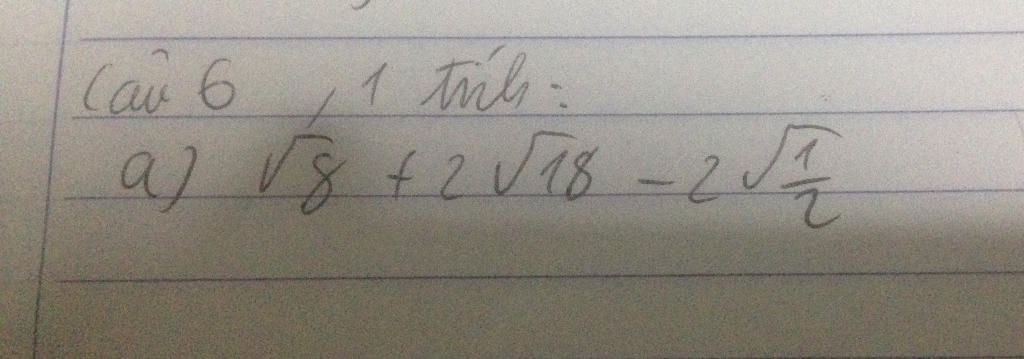 Câu 6, 1 tính:
a) √8 + 2√18 - 2√1/2